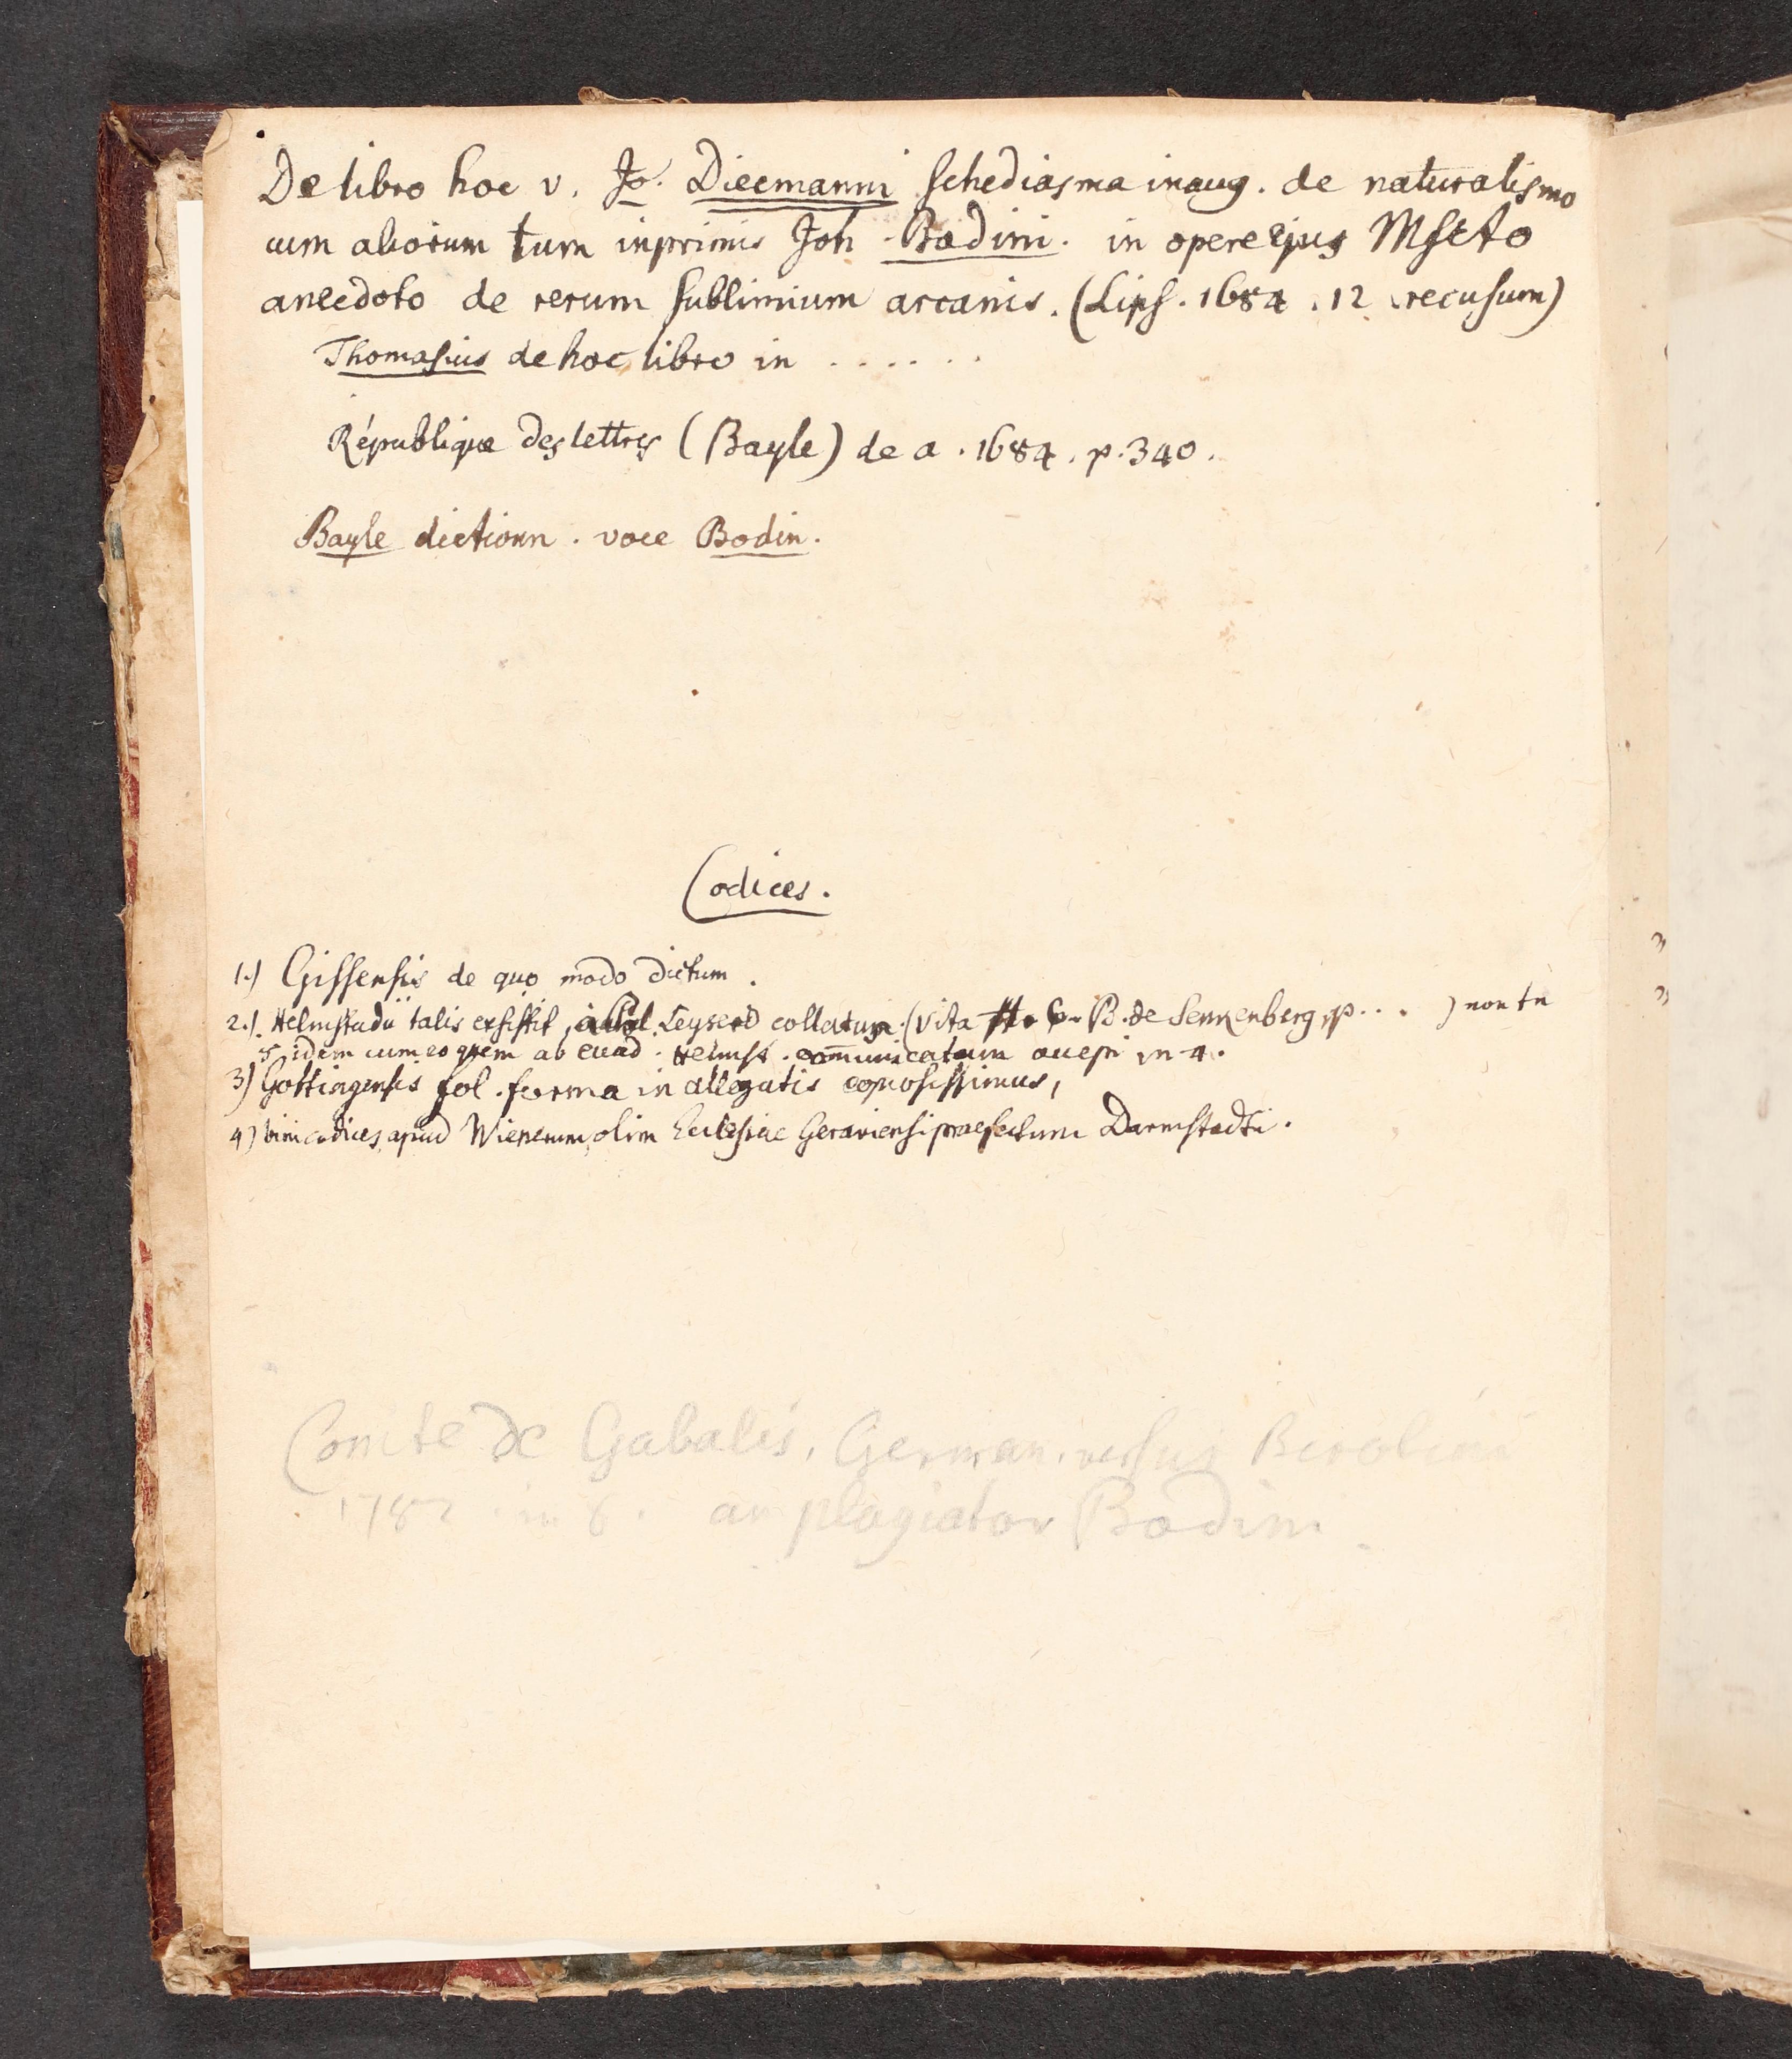 De libro hoc v. Jo. Diecmanni schediasma inaug. de naturalismo
cum aliorum tum inprimis Joh. Bodini. in opere ejus Mscto
anecdoto de rerum sublimium arcanis. (Lips. 1684. 12 recusum)
Thomasius de hoc libro in . . . . . .
République des lettres (Bayle) de a. 1684. p. 340.
Bayle dictionn. voce Bodin.
Codices.
1.) Gissensis de quo modo dictum.
2.) Helmstadii talis exsistit, Leysero collatus. (Vita B. de Senkenberg, p. . . . ) non tn
idem cum eo quem ab acad. Helmst. com̄unicatum accepi in 4.
3) Gottingensis fol. forma in allegatis copiosissimus,
4) bini codices apud Wienerum olim Eclesiae Geraviensi praefectum Darmstadti.
Comte de Gabalis, German. versus Berolini
1782 in 8. an plagiator Bodini